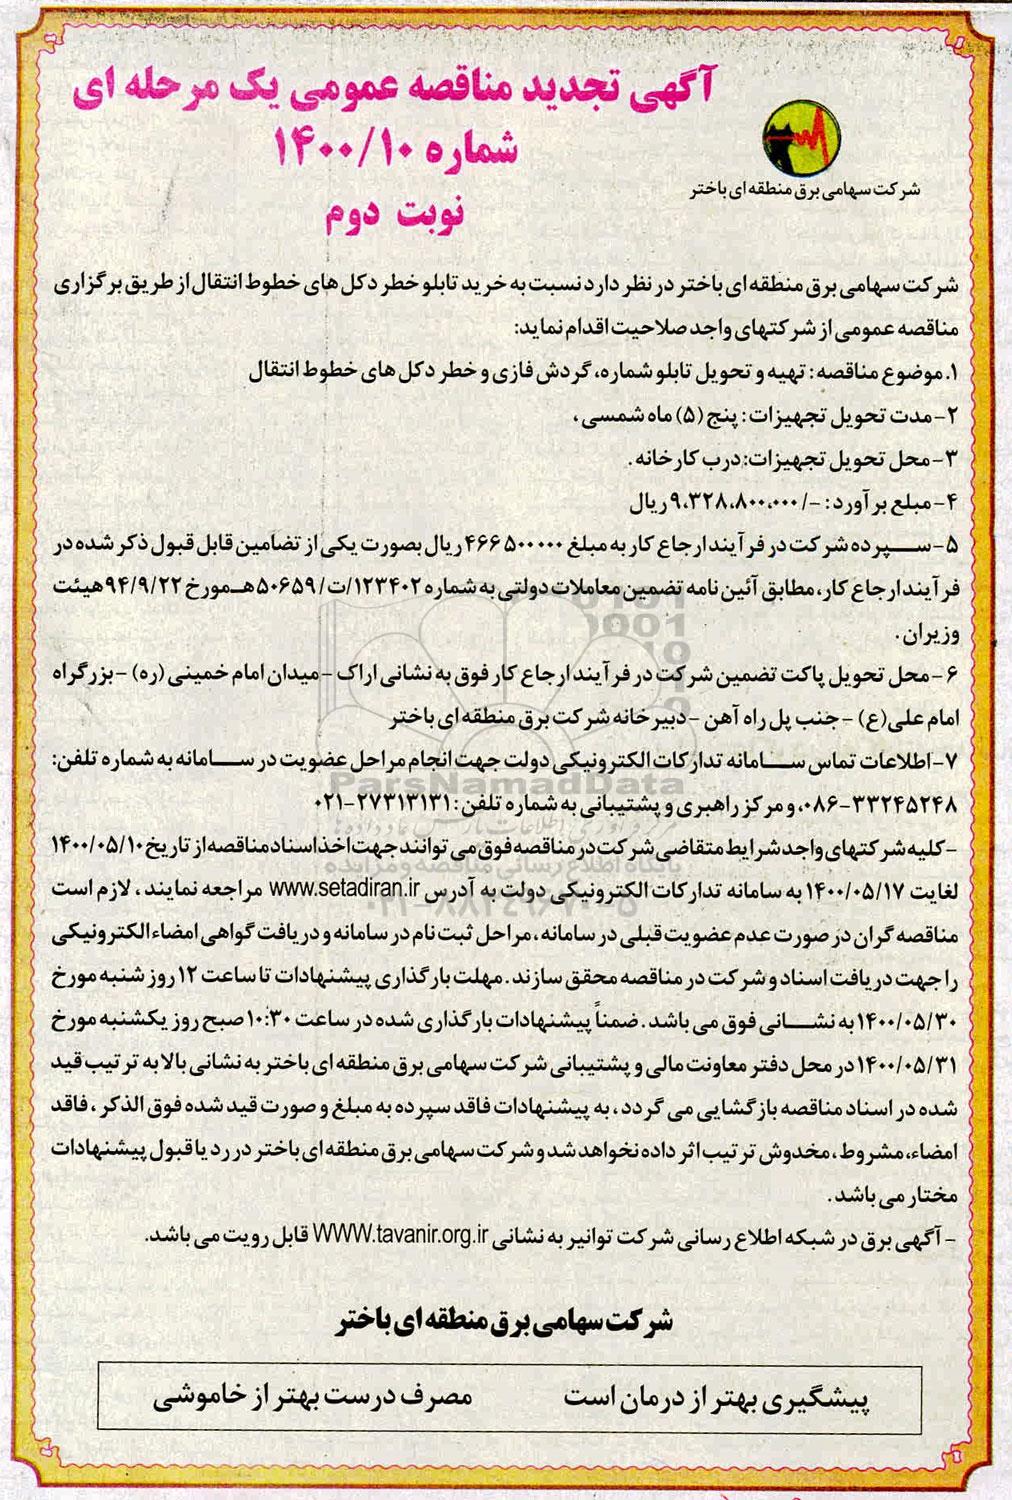 آگهی تجدید مناقصه عمومی یک مرحله ای
شماره ۱۴۰۰/۱۰
نوبت دوم
شرکت سهامی برق منطقه ای باختر
شرکت سهامی برق منطقه ای باختر در نظر دارد نسبت به خرید تابلو خطر دکل های خطوط انتقال از طریق برگزاری
مناقصه عمومی از شرکتهای واجد صلاحیت اقدام نماید:
۱. موضوع مناقصه: تهیه و تحویل تابلو شماره، گردش فازی و خطر دکل های خطوط انتقال
۲-مدت تحویل تجهیزات: پنج (۵) ماه شمسی،
۳-محل تحویل تجهیزات: درب کارخانه.
۴-مبلغ برآورد: -/۹،۳۲۸،۸۰۰،۰۰۰ ریال
۵-سپرده شرکت در فرآیند ارجاع کار به مبلغ ۴۶۶۵۰۰۰۰۰ ریال بصورت یکی از تضامین قابل قبول ذکر شده در
فرآیند ارجاع کار، مطابق آئین نامه تضمین معاملات دولتی به شماره ۱۲۳۴۰۲/ت/۵۰۶۵۹هـ مورخ ۹۴/۹/۲۲ هیئت
وزیران.
۶-محل تحویل پاکت تضمین شرکت در فرآیند ارجاع کار فوق به نشانی اراک -میدان امام خمینی (ره) -بزرگراه
امام علی(ع) -جنب پل راه آهن -دبیرخانه شرکت برق منطقه ای باختر
۷-اطلاعات تماس سامانه تدارکات الکترونیکی دولت جهت انجام مراحل عضویت در سامانه به شماره تلفن:
۰۸۶-۳۳۲۴۵۲۴۸، و مرکز راهبری و پشتیبانی به شماره تلفن: ۰۲۱-۲۷۳۱۳۱۳۱
-کلیه شرکتهای واجد شرایط متقاضی شرکت در مناقصه فوق می توانند جهت اخذ اسناد مناقصه از تاریخ ۱۴۰۰/۰۵/۱۰
لغایت ۱۴۰۰/۰۵/۱۷ به سامانه تدارکات الکترونیکی دولت به آدرس www.setadiran.ir مراجعه نمایند، لازم است
مناقصه گران در صورت عدم عضویت قبلی در سامانه، مراحل ثبت نام در سامانه و دریافت گواهی امضاء الکترونیکی
را جهت دریافت اسناد و شرکت در مناقصه محقق سازند. مهلت بارگذاری پیشنهادات تا ساعت ۱۲ روز شنبه مورخ
۱۴۰۰/۰۵/۳۰ به نشانی فوق می باشد. ضمناً پیشنهادات بارگذاری شده در ساعت ۱۰:۳۰ صبح روز یکشنبه مورخ
۱۴۰۰/۰۵/۳۱ در محل دفتر معاونت مالی و پشتیبانی شرکت سهامی برق منطقه ای باختر به نشانی بالا به ترتیب قید
شده در اسناد مناقصه بازگشایی می گردد، به پیشنهادات فاقد سپرده به مبلغ و صورت قید شده فوق الذکر، فاقد
امضاء، مشروط، مخدوش ترتیب اثر داده نخواهد شد و شرکت سهامی برق منطقه ای باختر در رد یا قبول پیشنهادات
مختار می باشد.
- آگهی برق در شبکه اطلاع رسانی شرکت توانیر به نشانی WWW.tavanir.org.ir قابل رویت می باشد.
شرکت سهامی برق منطقه ای باختر
پیشگیری بهتر از درمان است مصرف درست بهتر از خاموشی
ParsNamadData
پایگاه اطلاع رسانی مناقصه و مزایده